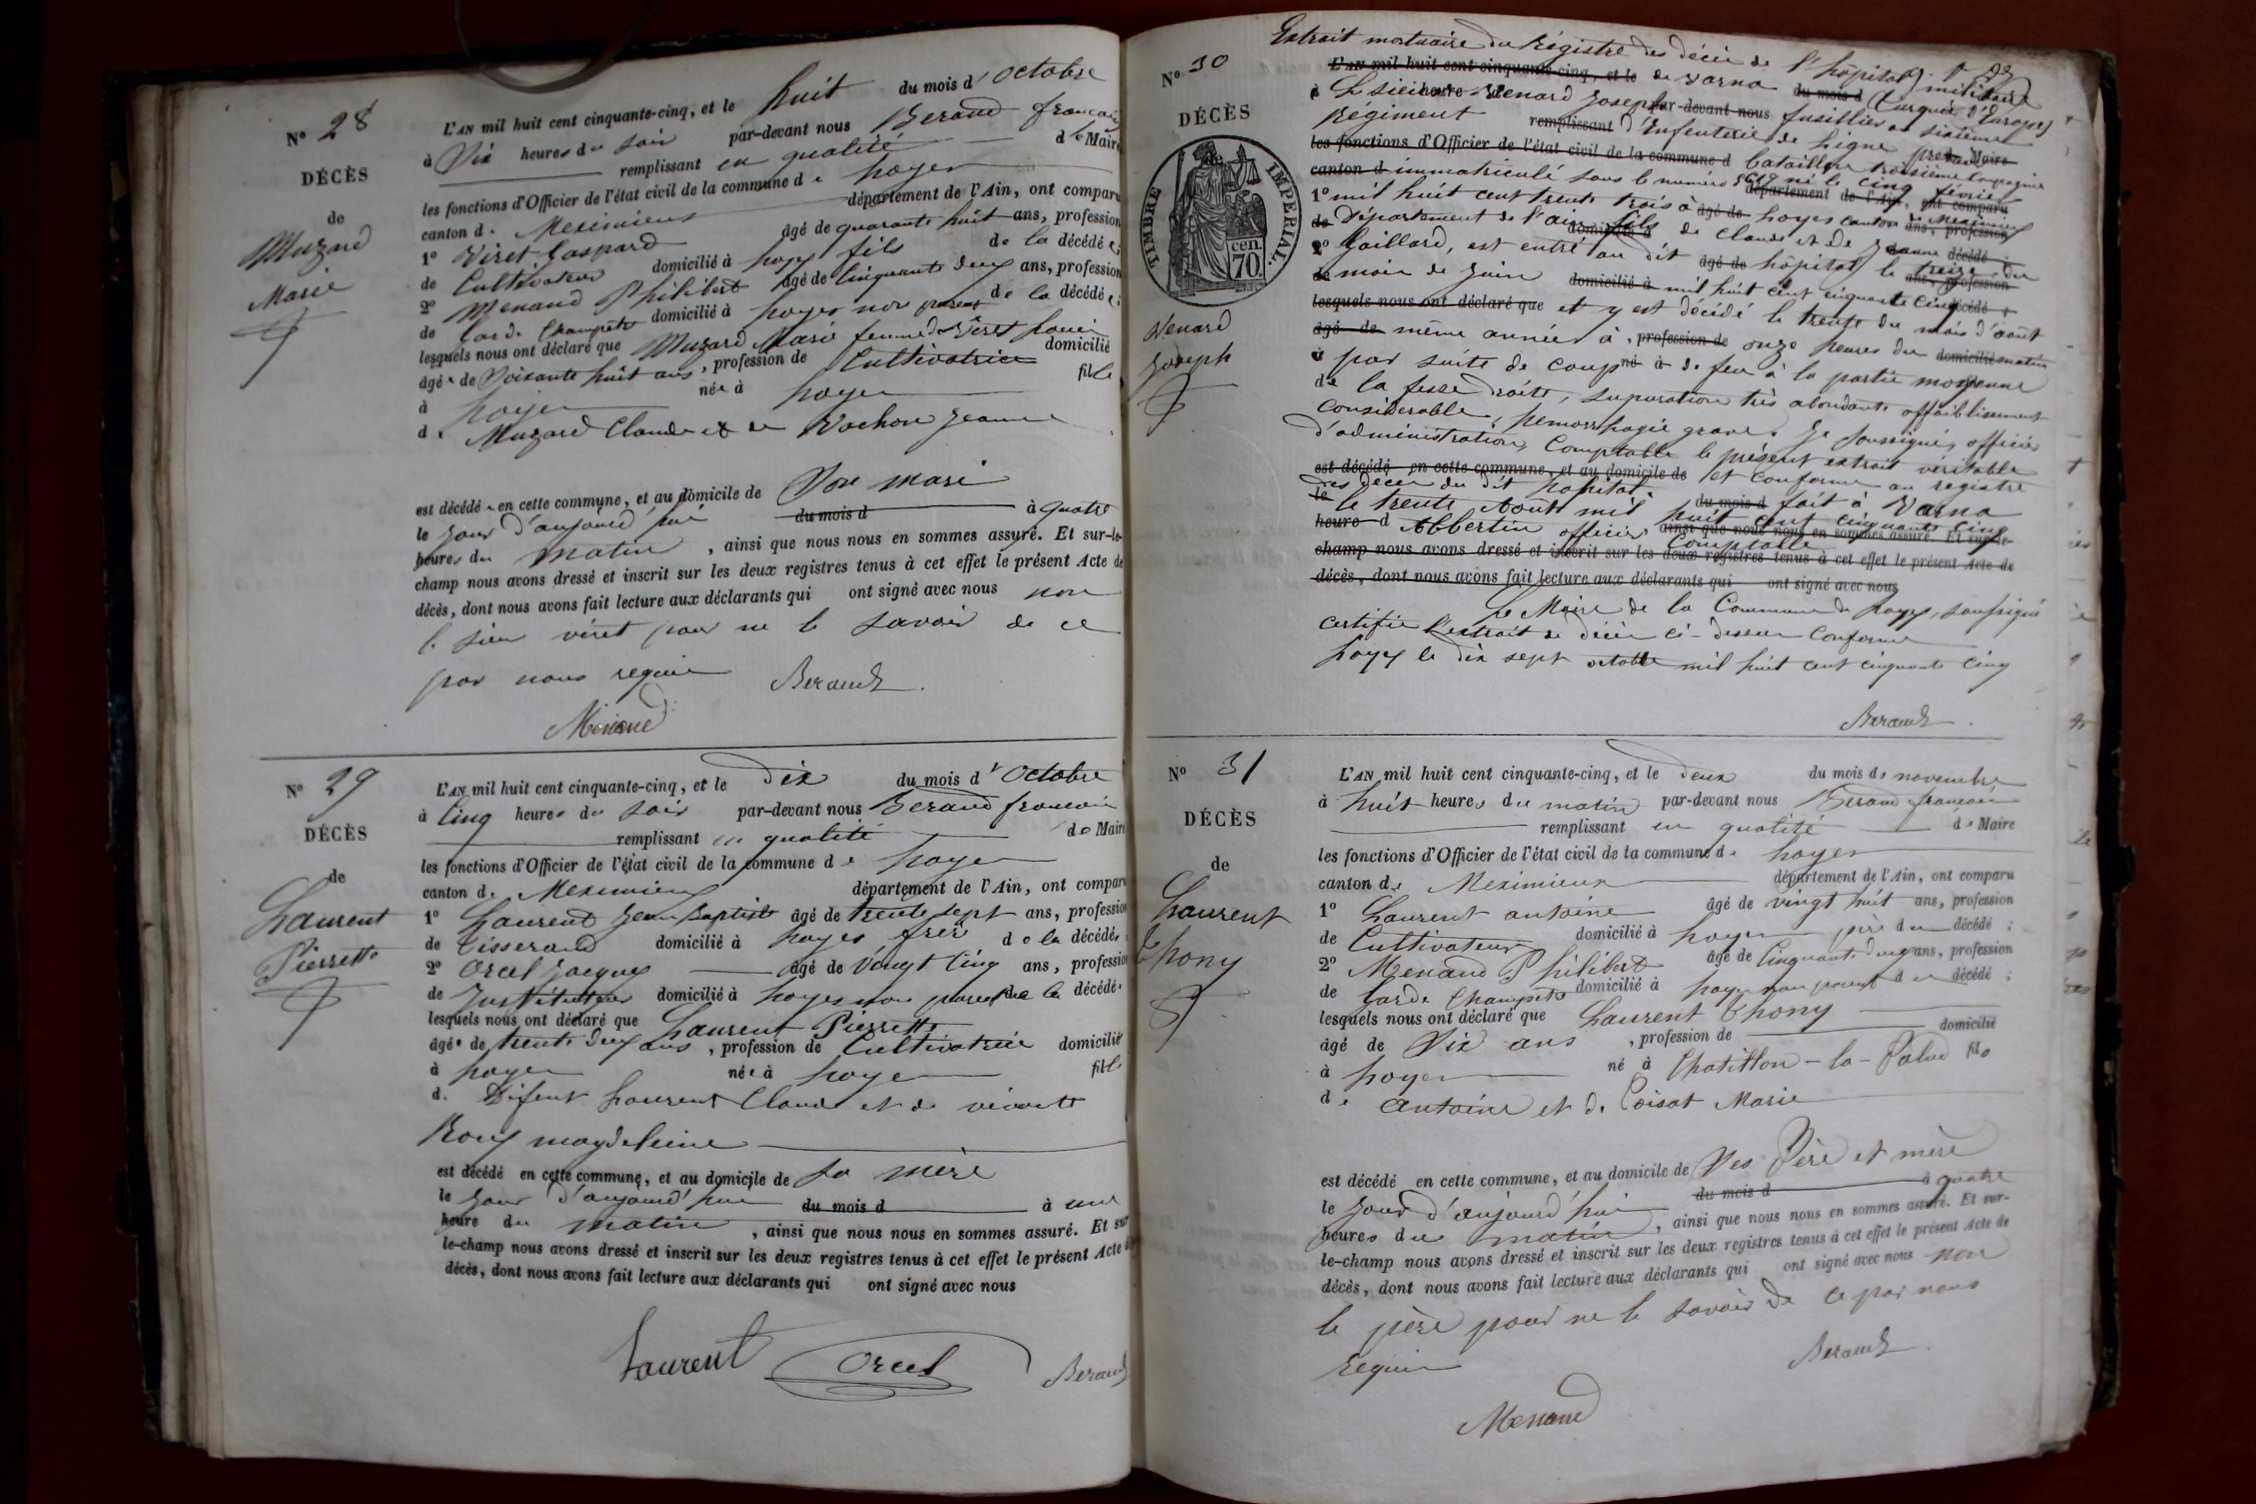 N° 28
DÉCÈS
de
Muzard
Marie
L'AN mil huit cent cinquante-cinq, et le huit du mois d'Octobre
à Six heures du soir par-devant nous Beraud francois
remplissant en qualité de Maire
les fonctions d'Officier de l'état civil de la commune de Loyes
canton de Meximieux département de l'Ain, ont comparu
1° Viret Gaspard âgé de quarante huit ans, profession
de Cultivateur domicilié à Loyes fils de la décédée;
2° Menand Philibert âgé de Cinquante deux ans, profession
de Garde Champetre domicilié à Loyes non parent de la décédée;
lesquels nous ont déclaré que Muzard Marie femme de Viret
âgée de Soixante huit ans, profession de Cultivatrice domicilié
à Loyes née à Loyes fille
de Muzard Claude et de Vachon Jeanne
est décédée en cette commune, et au domicile de Son mari
le Jour d'aujourd'hui du mois d à quatre
heures du matin, ainsi que nous nous en sommes assuré. Et sur-le-
champ nous avons dressé et inscrit sur les deux registres tenus à cet effet le présent Acte de
décès, dont nous avons fait lecture aux déclarants qui ont signé avec nous non
le sieur viret pour ne le savoir de ce
par nous requis Beraud
Menand
N° 29
DÉCÈS
de
Laurent
Pierrette
L'AN mil huit cent cinquante-cinq, et le dix du mois d'Octobre
à Cinq heures du soir par-devant nous Beraud francois
remplissant en qualité de Maire
les fonctions d'Officier de l'état civil de la commune de Loyes
canton de Meximieux département de l'Ain, ont comparu
1° Laurent Jean Baptiste âgé de trente sept ans, profession
de Tisserand domicilié à Loyes frère de la décédée
2° Orcel Jacques âgé de Vingt Cinq ans, profession
de Instituteur domicilié à Loyes non parent de la décédée
lesquels nous ont déclaré que Laurent Pierrette
âgée de trente deux ans, profession de Cultivatrice domicilié
à Loyes née à Loyes fille
de Défunt Laurent Claude et de vivante
Roux magdeleine
est décédé en cette commune, et au domicile de Sa mère
le Jour d'aujourd'hui du mois d à une
heure du matin, ainsi que nous nous en sommes assuré. Et sur-
le-champ nous avons dressé et inscrit sur les deux registres tenus à cet effet le présent Acte de
décès, dont nous avons fait lecture aux déclarants qui ont signé avec nous
Laurent Orcel Beraud
N° 30
DÉCÈS
TIMBRE IMPERIAL.
70 cen.
Venard
Joseph
Extrait mortuaire du Régistre des décès de l'hôpital militaire
L'AN mil huit cent cinquante-cinq, et le de Varna du mois d (turquie d'Europe)
à Le sieur heure Venard Joseph par-devant nous fusillier au sixième
Régiment remplissant d'Enfenterie de Ligne Maire
les fonctions d'Officier de l'état civil de la commune d Bataillon troisième Compagnie
canton d immatriculé sous le numéro né le cinq février département de l'Ain, ont comparu
1° mil huit cent trente trois à âgé de Loyes canton de Meximieux ans, profession
de Département de l'ain domicilié à fils de Claude et de Jeanne décédé;
2° Gaillard, est entré au dit âgé de hôpital le treize du ans, profession
de mois de Juin domicilié à mil huit cent cinquante cinq décédé;
lesquels nous ont déclaré que et y est décédé le trente du mois d'août
âgé de même année à, profession de onze heures du domicilié matin
à par suite de coup né à de feu à la partie moyenne
de la fesse droite, supuration très abondante affaiblissement
considérable, hemorrhagie grave. Je soussigné, officier
d'administration Comptable le présent extrait véritable
est décédé en cette commune, et au domicile de et conforme au registre
des décès du dit hopital du mois d fait à Varna
le le trente Août mil huit cent cinquante cinq
heure d Albertin officier Comptable ainsi que nous nous en sommes assuré. Et sur-le-
champ nous avons dressé et inscrit sur les deux registres tenus à cet effet le présent Acte de
décès, dont nous avons fait lecture aux déclarants qui ont signé avec nous
Le Maire de la Commune de Loyes, soussigné
certifie l'extrait de décès ci-dessus Conforme
Loyes le dix sept octobre mil huit cent cinquante cinq
Beraud
N° 31
DÉCÈS
de
Laurent
thony
L'AN mil huit cent cinquante-cinq, et le deux du mois de novembre
à huit heures du matin par-devant nous Beraud francois
remplissant en qualité de Maire
les fonctions d'Officier de l'état civil de la commune de Loyes
canton de Meximieux département de l'Ain, ont comparu
1° Laurent antoine âgé de vingt huit ans, profession
de Cultivateur domicilié à Loyes père du décédé;
2° Menand Philibert âgé de Cinquante deux ans, profession
de Garde Champetre domicilié à Loyes non parent du décédé;
lesquels nous ont déclaré que Laurent thony
âgé de Six ans, profession de domicilié
à Loyes né à Chatillon-la-Palud fils
de antoine et de Poisat Marie
est décédé en cette commune, et au domicile de Ses Père et mère
le Jour d'aujourd'hui du mois d à quatre
heures du matin, ainsi que nous nous en sommes assuré. Et sur-
le-champ nous avons dressé et inscrit sur les deux registres tenus à cet effet le présent Acte de
décès, dont nous avons fait lecture aux déclarants qui ont signé avec nous non
le père pour ne le savoir de ce par nous
requis Beraud
Menand